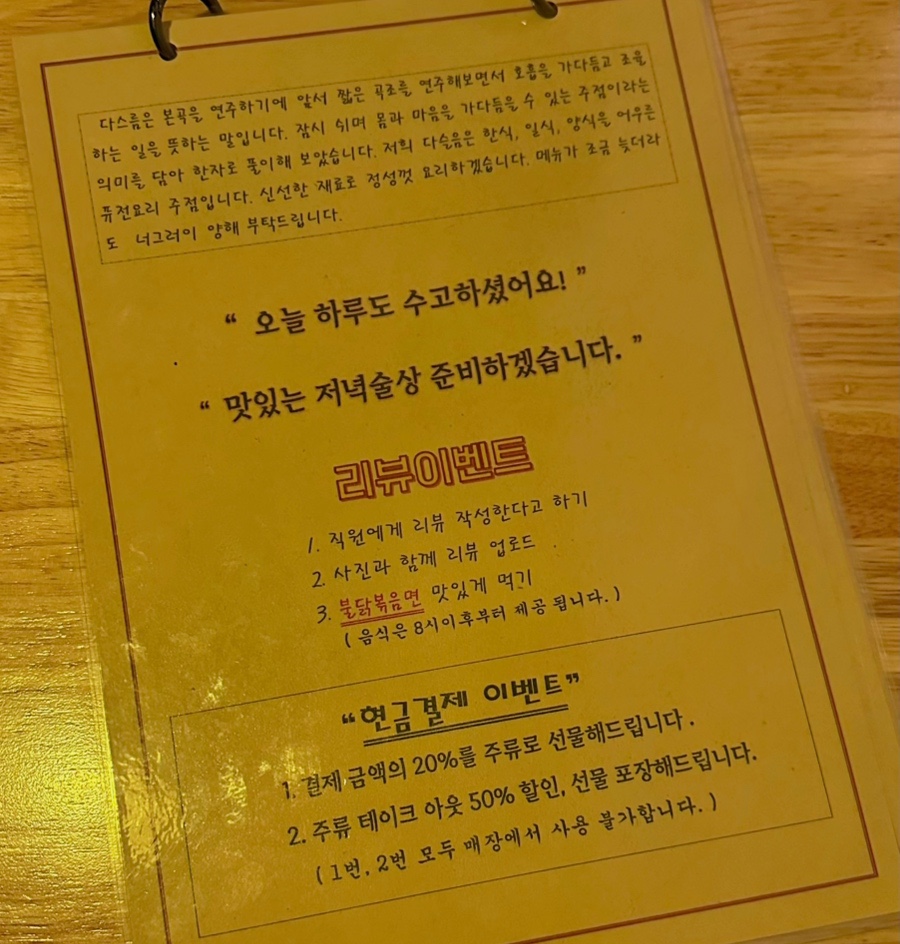 다스름은 본곡을 연주하기에 앞서 짧은 곡조를 연주해보면서 호흡을 가다듬고 조율
하는 일을 뜻하는 말입니다. 잠시 쉬며 몸과 마음을 가다듬을 수 있는 주점이라는
의미를 담아 한자로 풀이해 보았습니다. 저희 다슬음은 한식, 일식, 양식을 어우른
퓨전요리 주점입니다. 신선한 재료로 정성껏 요리하겠습니다. 메뉴가 조금 늦더라
도 너그러이 양해 부탁드립니다.
“ 오늘 하루도 수고하셨어요! ”
“ 맛있는 저녁술상 준비하겠습니다. ”
리뷰이벤트
1. 직원에게 리뷰 작성한다고 하기
2. 사진과 함께 리뷰 업로드
3. 불닭볶음면 맛있게 먹기
( 음식은 8시이후부터 제공 됩니다. )
“현금결제 이벤트”
1. 결제 금액의 20%를 주류로 선물해드립니다.
2. 주류 테이크 아웃 50% 할인, 선물 포장해드립니다.
( 1번, 2번 모두 매장에서 사용 불가합니다. )